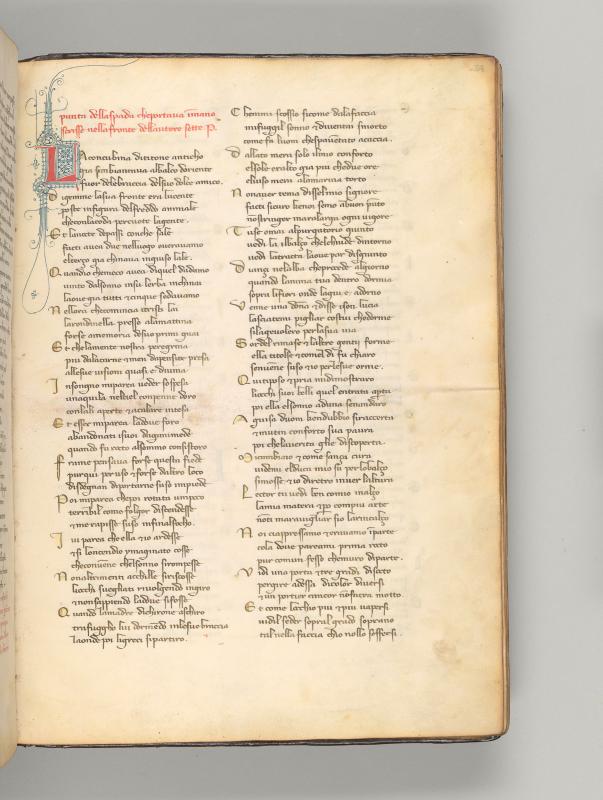 punta dellaspada cheportaua inmano
scrisse nellafronte dellautore sette P.
La concubina dititone anticho
gia simbiancaua albalco doriente
fuor delebraccia delsuo dolce amico.
D igemme lasua fronte era lucente
poste infigura delfreddo animale
checonlacoda percuote lagente.
E t lanotte depassi conche sale
facti auea due nelluogo oueravamo
elterço gia chinaua ingiuso lale.
Q uandio chemeco auea diquel dadamo
uinto dalsonno insu lerba inchinai
laoue gia tutti z cinque sedauamo
N ellora checomincia itristi lai
larondinella presso alamattina
forse amemoria desuo primi guai
E t chelamente nostra peregrina
piu dalacarne z men dapensier presa
allesue uisioni quasi e diuina
I nsongnio miparea ueder sospesa
unaguila nelciel conpenne doro
conlali aperte z acalare intesa
E t esser miparea laduue foro
abandonati isuoi daganimede
quando fu racto alsommo consistoro
F rame pensaua forse questa fiede
purqui per uso z forse daltro loco
disdegnan diportarne suso inpiede
P oi miparea chepoi rotata unpoco
terribil come folgor discendesse
z me rapisse suso infinalfocho.
I ui parea che ella z io ardesse
z si loncendio ymaginato cosse
checonuene chelsonno sirompesse
N onaltrimenti acchille siriscosse
liocchi suegliati riuolgendo ingiro
z nonsappiendo ladoue sifosse
Q uando lamadre dichirone aschiro
trafuggho lui dormendo inlesue braccia
laonde poi ligreci sipartiro.
C hemmi scossio sicome dalafaccia
mifuggil sonno z diuentai smorto
come fa luom chespauentato acaccia.
D allato mera solo ilmio conforto
elsole eralto gia piu chedue ore
eluiso mera alamarina torto
N onauer tema dissel mio signore
facti sicuro kenoi semo abuon punto
nostringer maralarga ogni uigore
T use omai alpurgatorio giunto
uedi la ilbalço chelchiude dintorno
uedi lentrata laoue par disgiunto
D iançi nelalba cheprecede algiorno
quando lanima tua dentro dormia
sopra lifiori onde laggiu e adorno
U enne una donna z disse ison lucia
lasciatemi pigliar costui chedorme
silageuolero perlasua uia
S ordel rimase z laltre gentil forme
ella titolse z comel di fu chiaro
sonuene suso z io perlesue orme.
Q uitiposo z pria midimostraro
liocchi suoi belli quel entrata aperta
poi ella elsonno aduna senandaro
A guisa duom kendubbio siraccerta
z mutin conforto sua paura
poi chelauerita glie discoperta.
M icambiaio z come sança cura
uidemi elduca mio su per lobalço
simosse z io diretro inuer laltura
L ector tu uedi ben comio inalço
lamia matera z pero compiu arte
noti marauigliar sio larincalço
N oi ciapressamo z erauamo inparte
cola doue pareami prima rocto
pur comun fesso chemuro diparte.
U idi una porta z tre gradi disocto
pergire adessa dicolor diuersi
z un portier cancor nonfacea motto.
E t come locchio piu z piu uapersi
uidil seder sopral grado soprano
tal nella faccia chio nollo soffersi.